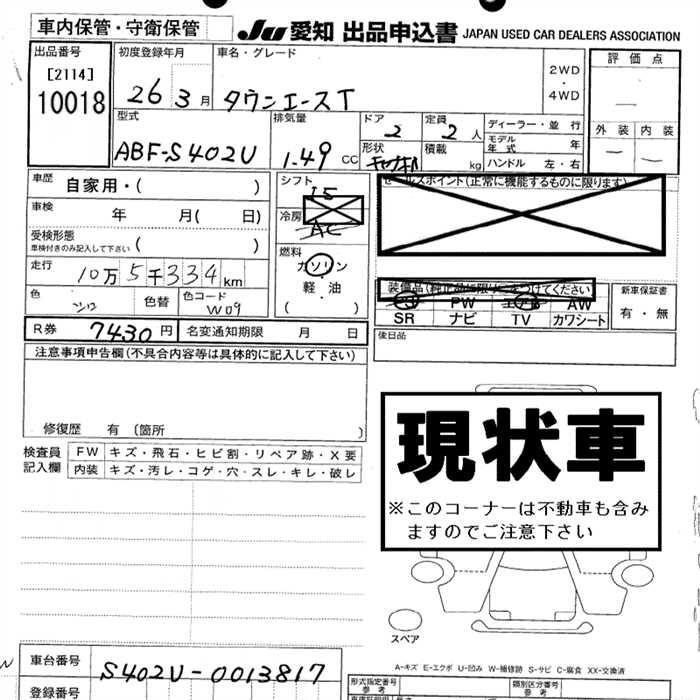 車内保管・守衛保管
JU 愛知 出品申込書 JAPAN USED CAR DEALERS ASSOCIATION
出品番号
[2114]
10018
初度登録年月
26 3月
車名・グレード
タウンエースT
2WD
・
4WD
評価点
—
外装 内装
— —
型式
ABF-S402U
排気量
1.49 CC
ドア
2
定員
2人
形状
積載
kg
ディーラー・並行
モデル年式 年
ハンドル 左・右
車歴 自家用・( )
車検 年 月( 日)
受検形態
車検付きのみ記入して下さい ( )
走行 10万5千334km
色 シロ 色替 色コード W09
R券 7430円 名変通知期限 月 日
シフト
I5
冷房
AC
燃料
ガソリン
・
軽・油
( )
セールスポイント(正常に機能するものに限ります)
装備品(純正品に限り○をつけてください)
PS PW エアB AW
SR ナビ TV カワシート
新車保証書
有・無
後日品
注意事項申告欄(不具合内容等は具体的に記入して下さい)
修復歴 有 (箇所 )
検査員記入欄
FW キズ・飛石・ヒビ割・リペア跡・X要
内装 キズ・汚レ・コゲ・穴・スレ・キレ・破レ
現状車
※このコーナーは不動車も含み
ますのでご注意下さい
スペア
A-キズ E-エクボ U-凹み W-補修跡 S-サビ C-腐食 XX-交換済
車台番号 S402U-0013817
登録番号
形式指定番号
参考
類別区分番号
参考